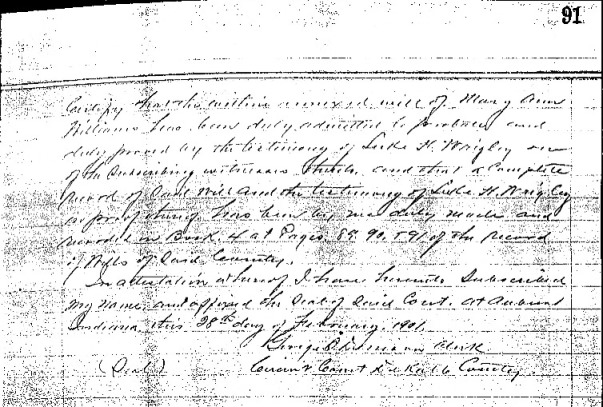 91
Certify that the within annexed will of Mary Ann
Williams has been duly admitted to probate and
duly proved by the testimony of Luke H. Wrigley one
of the Subscribing witnesses thereto, and that a Complete
record of Said Will and the testimony of Luke H. Wrigley
in proof thereof has been by me duly made and
recorded in Book 4 at Pages 89, 90, & 91 of the record
of Wills of Said County.
In attestation whereof I have hereunto Subscribed
my name, and affixed the Seal of Said Court, at Auburn
Indiana, this 28th day of February, 1901.
George Clerk
(Seal) Circuit Court DeKalb County